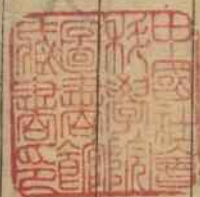 中國社會
科學院
圖書館
藏書印